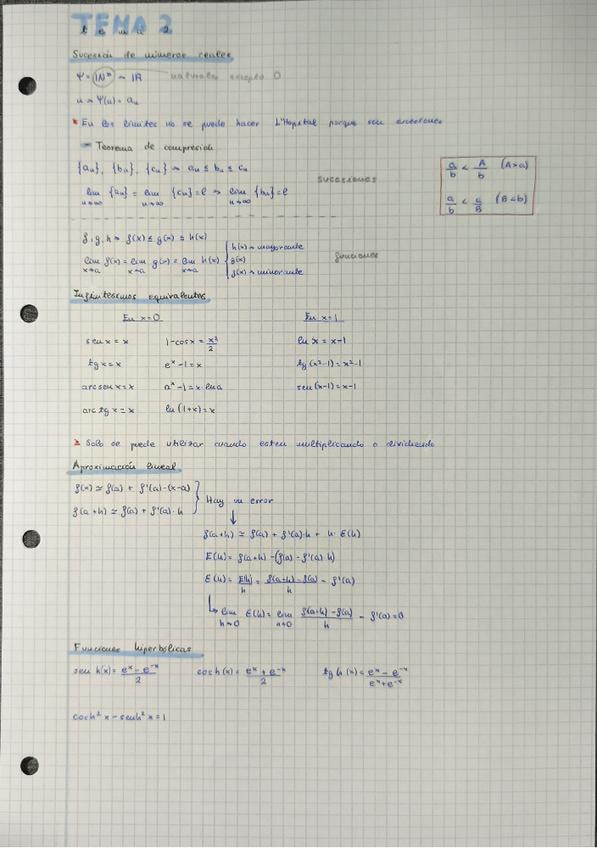 TEMA 2
tema 2
Sucesión de números reales
Ψ = ℕ* → ℝ naturales excepto 0
n → Ψ(n) = aₙ
* En los límites no se puede hacer L'Hopital porque son sucesiones
→ Teorema de compresión
{aₙ}, {bₙ}, {cₙ} → aₙ ≤ bₙ ≤ cₙ
lim n→∞ {aₙ} = lim n→∞ {cₙ} = l → lim n→∞ {bₙ} = l
sucesiones
a/b < A/b (A>a)
a/b < a/B (B<b)
f, g, h → f(x) ≤ g(x) ≤ h(x)
lim x→a f(x) = lim x→a g(x) = lim x→a h(x)
h(x) → mayorante
g(x)
f(x) → minorante
funciones
Infinitésimos equivalentes
En x=0 En x=1
sen x = x 1-cosx = x²/2 ln x = x-1
tg x = x eˣ-1 = x tg (x²-1) = x²-1
arc sen x = x aˣ-1 = x·ln a sen (x-1) = x-1
arc tg x = x ln (1+x) = x
* Solo se puede utilizar cuando esten multiplicando o dividiendo
Aproximación lineal
f(x) ≃ f(a) + f'(a)·(x-a)
f(a+h) ≃ f(a) + f'(a)·h
Hay un error
f(a+h) ≃ f(a) + f'(a)·h + h·E(h)
E(h) = f(a+h) - (f(a) - f'(a)·h)
E(h) = E(h)/h = f(a+h) - f(a)/h - f'(a)
lim h→0 E(h) = lim h→0 f(a+h) - f(a)/h - f'(a) = 0
Funciones hiperbólicas
sen h(x) = eˣ - e⁻ˣ/2 cos h(x) = eˣ + e⁻ˣ/2 tg h(x) = eˣ - e⁻ˣ/eˣ + e⁻ˣ
cosh² x - senh² x = 1